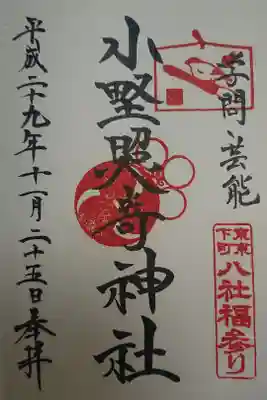 学問芸能
東京下町
八社福参り
小野照崎神社
平成二十九年十一月二十五日参拝